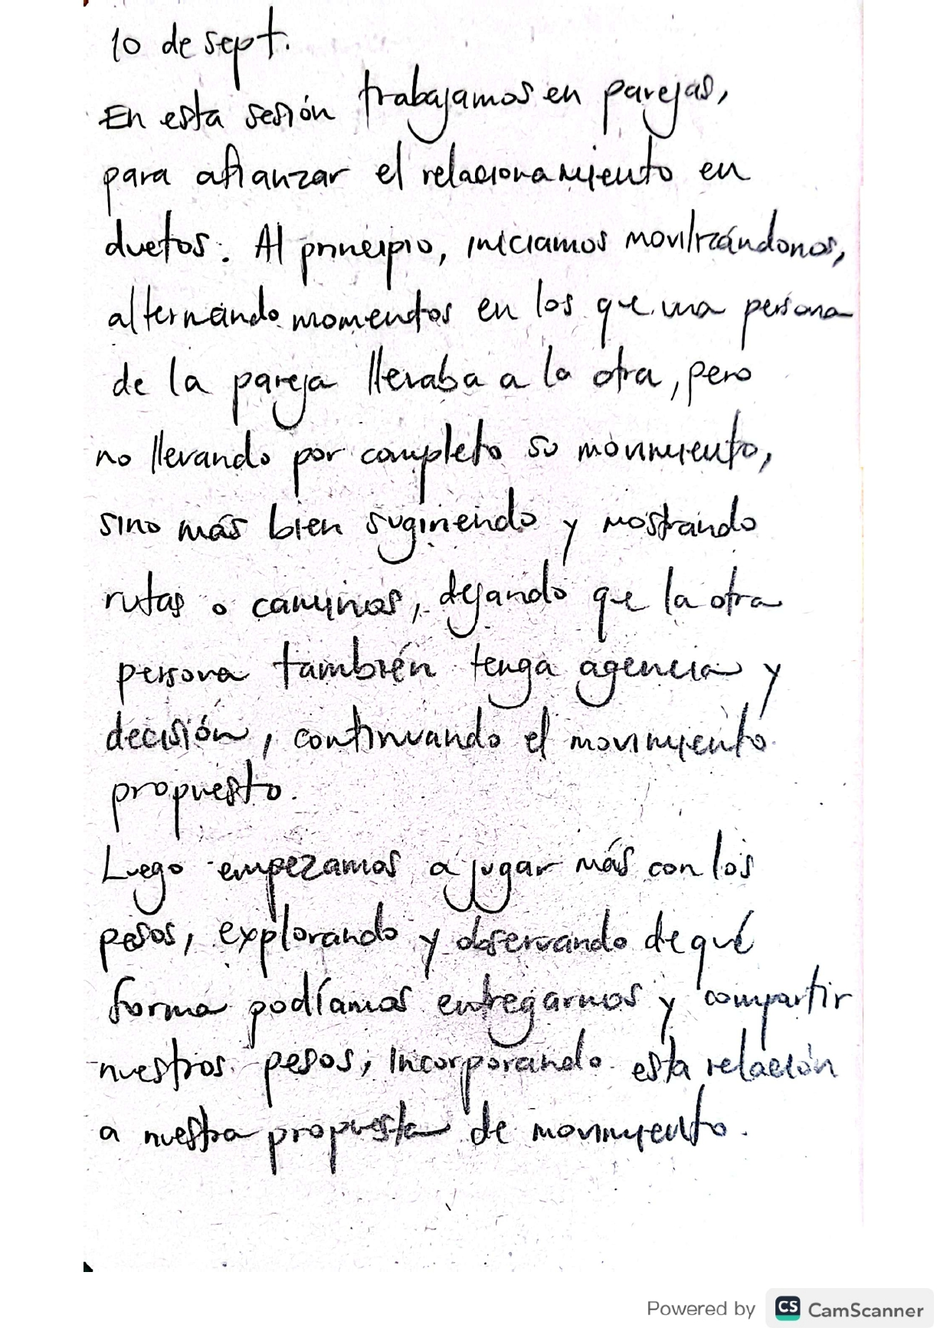 10 de sept.
En esta sesión trabajamos en parejas,
para afianzar el relacionamiento en
duetos. Al principio, iniciamos movilizándonos,
alternando momentos en los que una persona
de la pareja llevaba a la otra, pero
no llevando por completo su movimiento,
sino más bien sugiriendo y mostrando
rutas o caminos, dejando que la otra
persona también tenga agencia y
decisión, continuando el movimiento
propuesto.
Luego empezamos a jugar más con los
pesos, explorando y observando de qué
forma podíamos entregarnos y compartir
nuestros pesos, incorporando esta relación
a nuestra propuesta de movimiento.
Powered by CS CamScanner